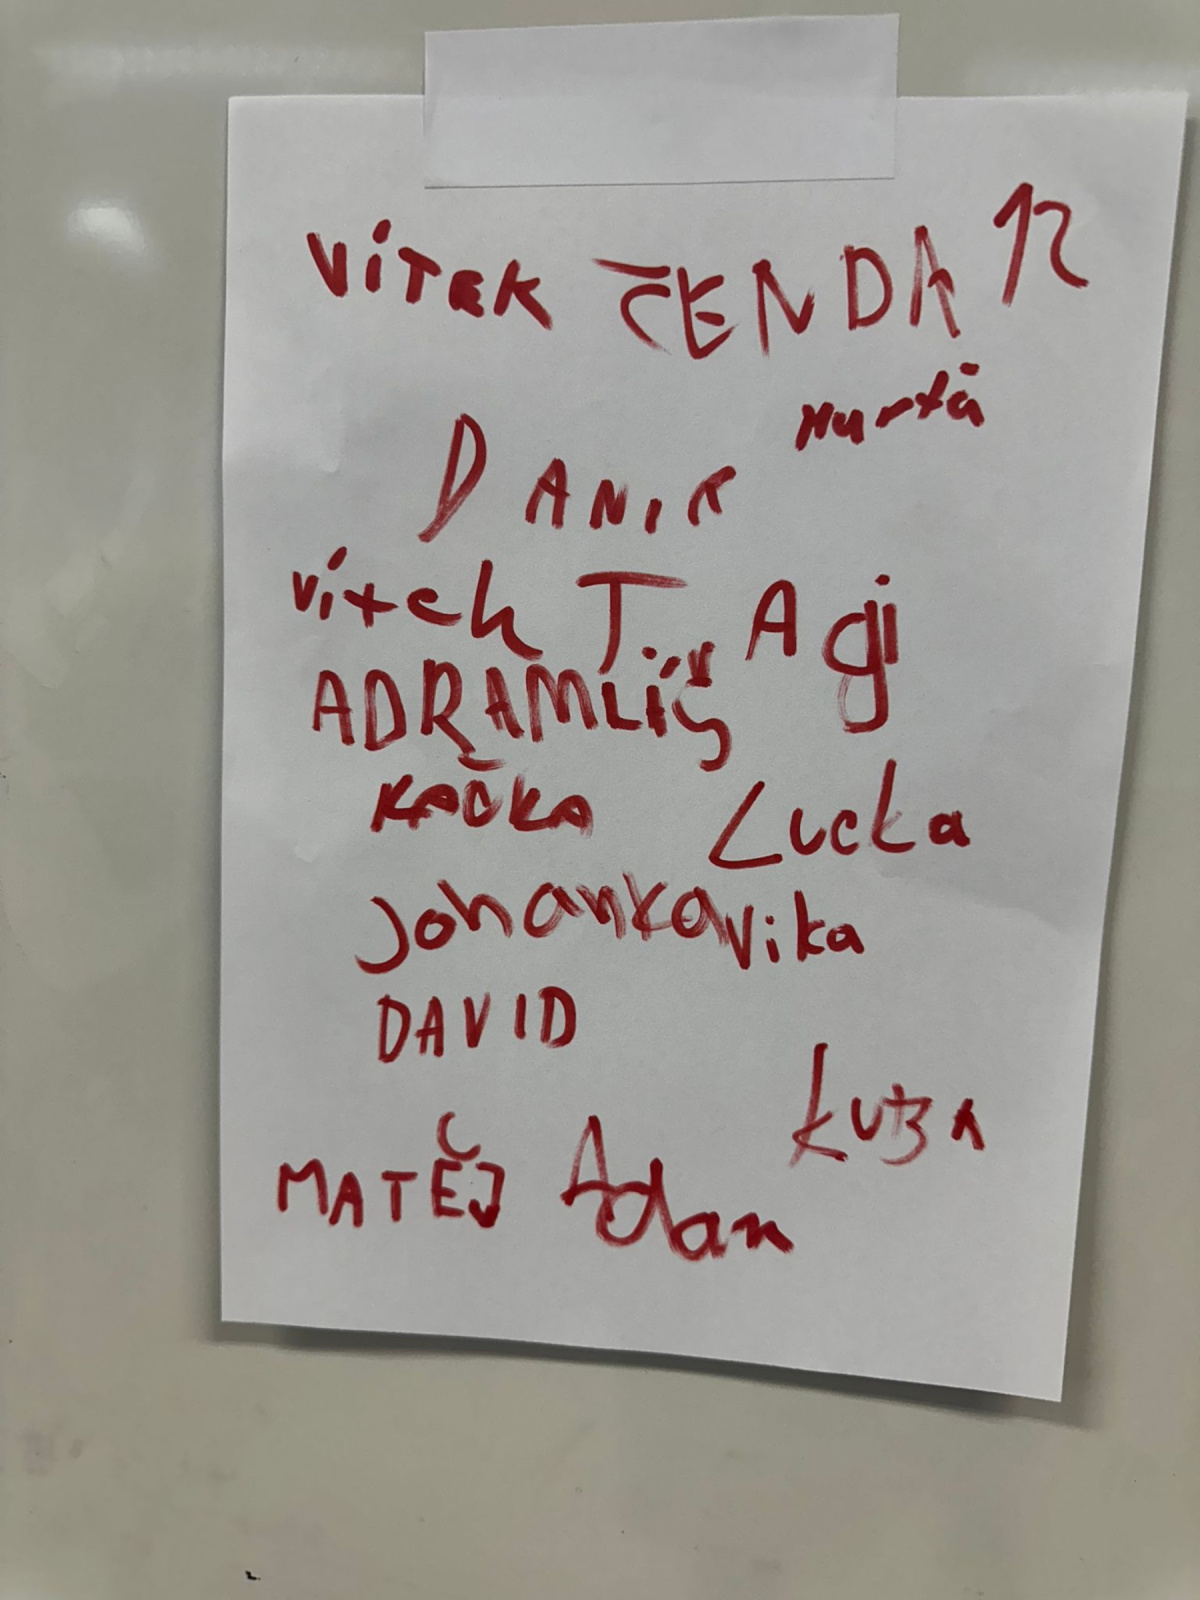 VÍTEK ČENDA
DANIK
Vítek T. Agi
ADRAM LÍŠ
KAČKA Lucka
Johanka Vika
DAVID
KUBA
MATĚJ Adam